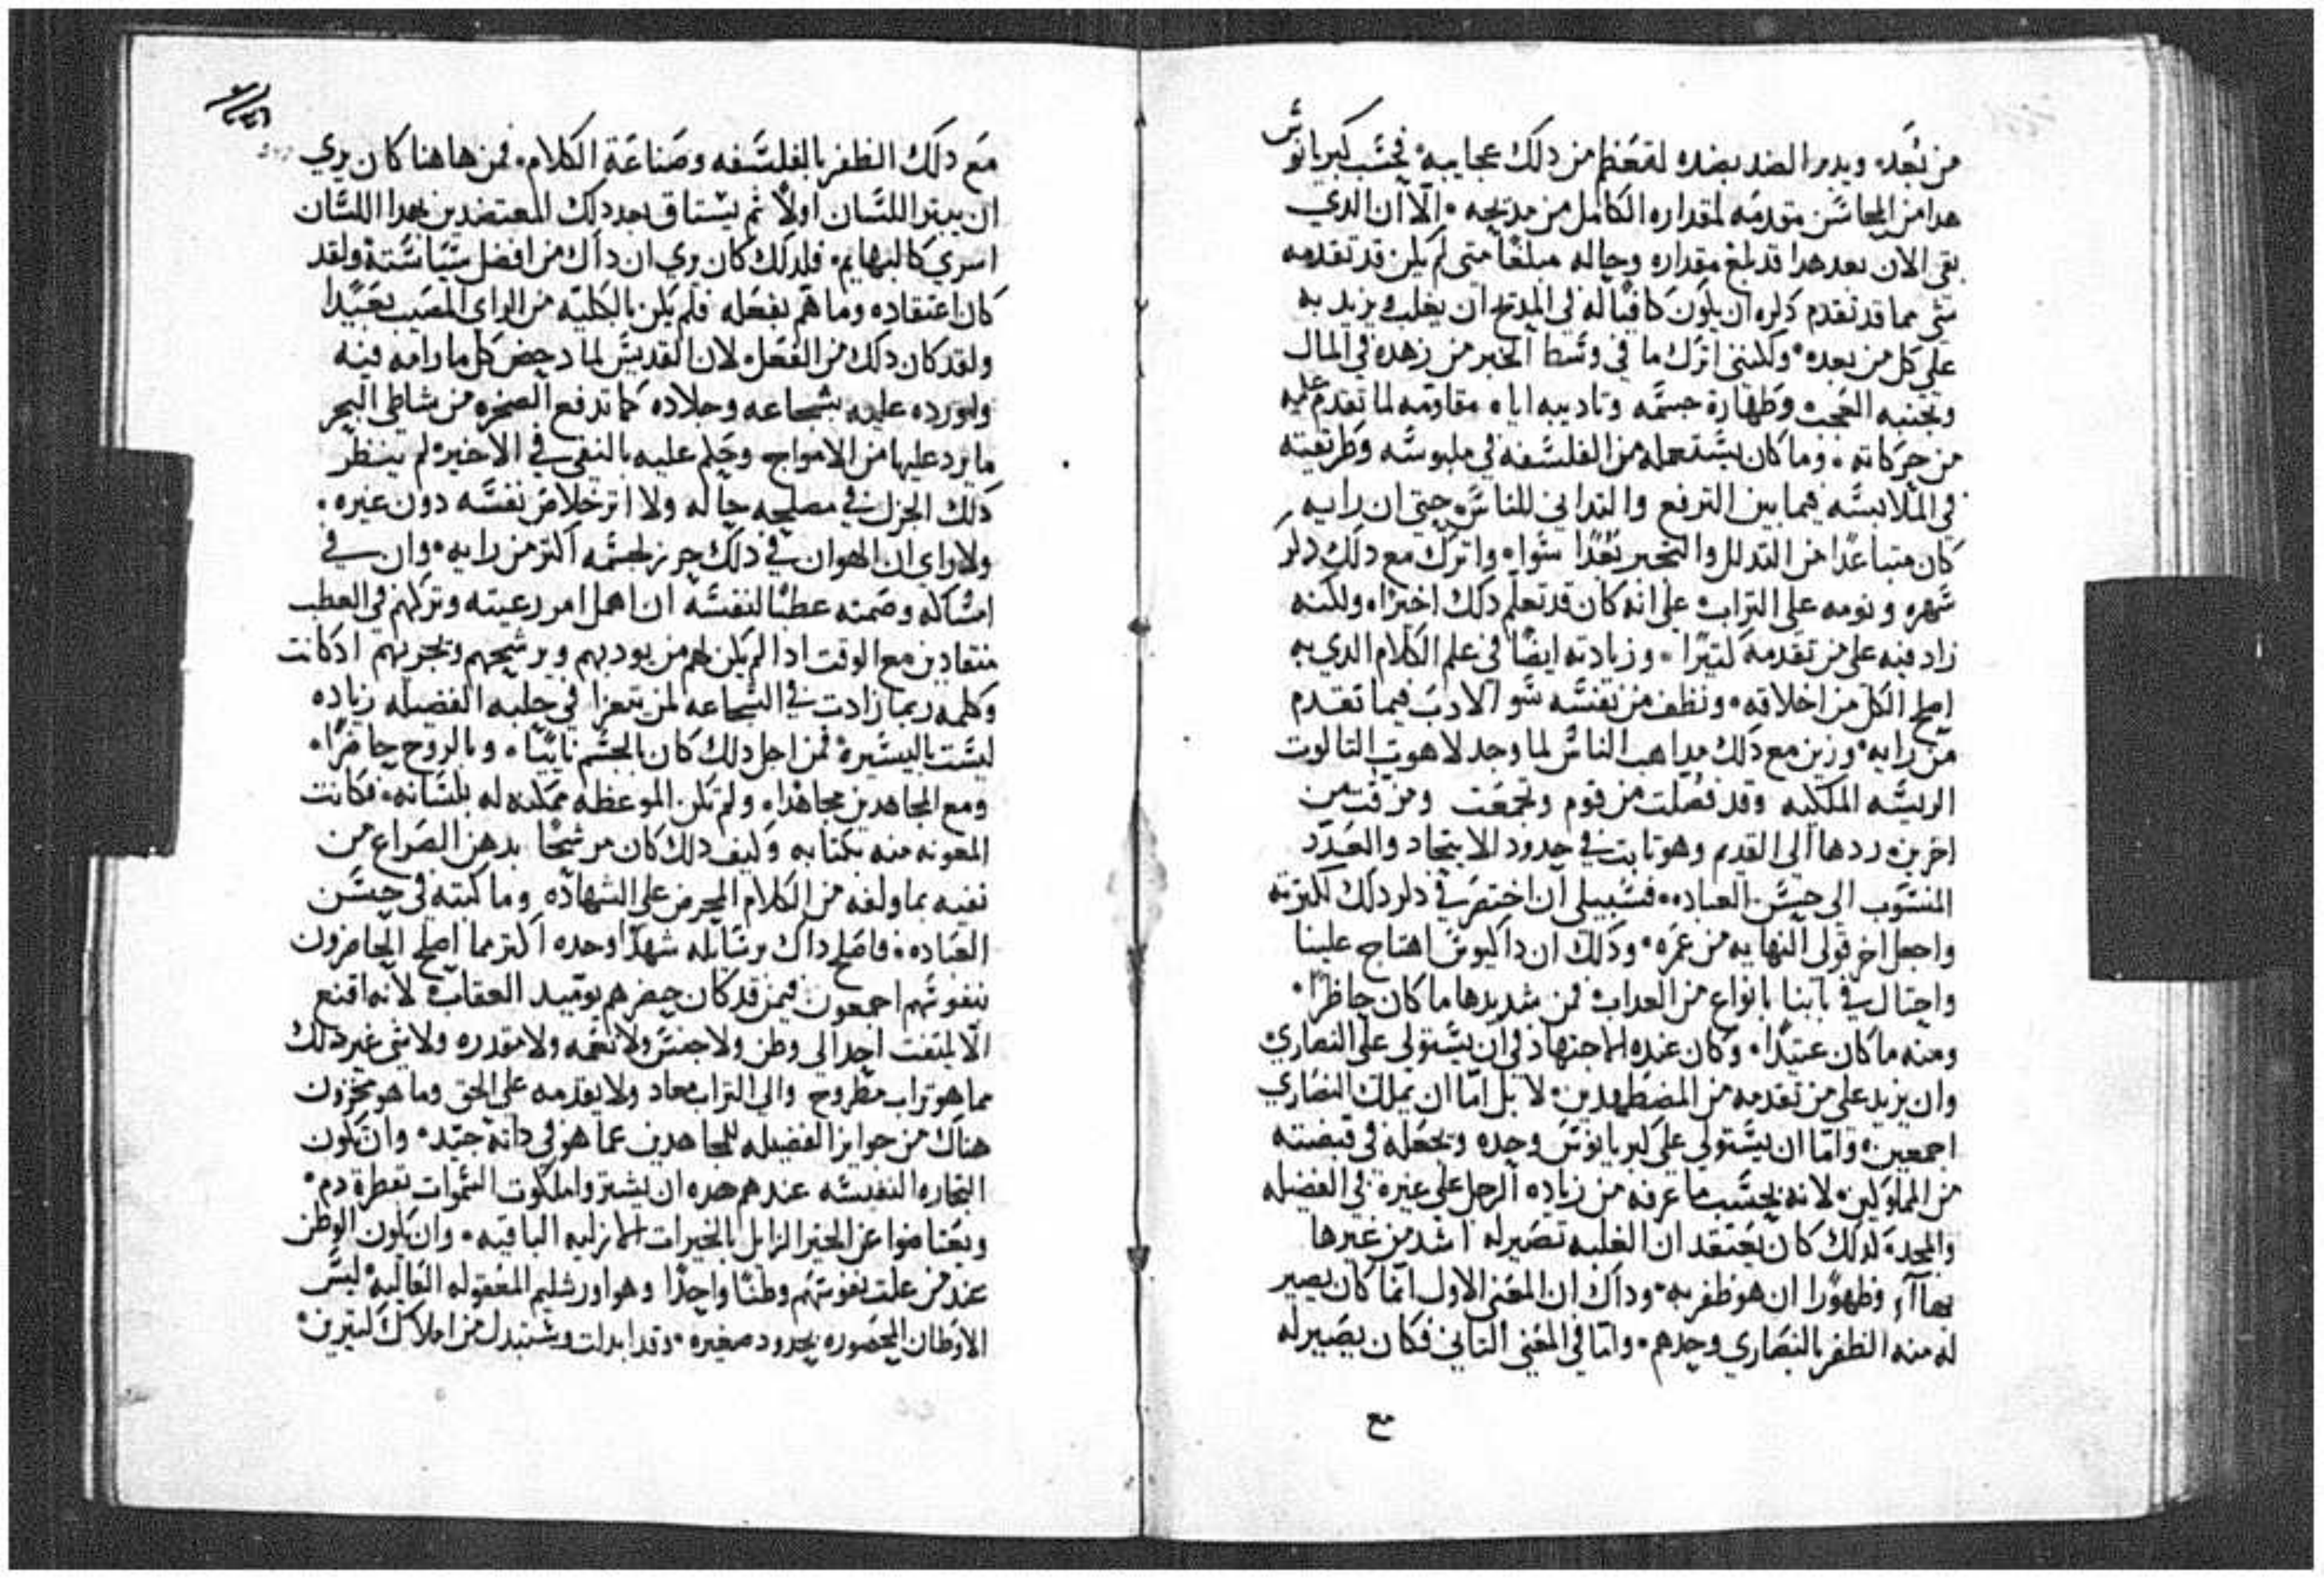 من بُعَد، ويدبر الضد بضده لتعَظم من دلك عجايبه، فحسَب كبريانوس
هدا من المحاسَن متقدمَه لمقداره الكامل من مديحه، الا ان الدي
بقي الان بعد هدا قد بلغ مقداره وحاله مبلغًا متى لم يكن قد تقدمه
شي مما قد تقدم دكره ان يكون كافيًا له في المديح ان يغلب ويزيد به
علي كل من بعده، ولكنني اترك ما في وسَط الخبر من زهده في المال
وتجنبه العُجب وطهارة جسَمه وتاديبه اياه مقاومَه لما تقدم عليه
من حركاته، وما كان يسَتعمله من الفلسَفه في ملبوسَه وطريقته
في الملابسَه فيما بين الترفع والتداني للناسَ حتي ان رايه
كان متباعدًا من التدلل والتجبر بعدًا سَوا، واترك مع دلك دكر
سَهره ونومه علي التراب علي انه كان قد تعلم دلك اخيرًا، ولكنه
زاد فيه علي من تقدمه كتيرًا، وزيادته ايضًا في علم الكلام الدي به
اصلح الكل من اخلاقه، ونظف من نفسَه سَو الادب فيما تقدم
من رايه، وزين مع دلك مداهب الناسَ لما وجد لاهوت التالوت
الريسَه الملكيه وقد فصُلت من قوم وجُمعَت ومزقت من
اخرين، ردها الي القديم وهو تابت في حدود الاتحاد والعَدد
المنسَوب الي حسَن العباده، فسَبيلي ان اختصَر في دكر دلك لكترته
واجعل اخر قولي النهايه من عمَره، ودلك ان داكيوسَ اهتاج علينا
واحتال في بابنا بانواع من العداب فمن شديدها ما كان حاظرًا،
ومنه ما كان عتيدًا، وكان عنده الاجتهاد في ان يسَتولي علي النصاري
وان يزيد علي من تقدمه من المضطهدين، لا بل امّا ان يملك النصَاري
اجمعين، وامّا ان يسَتولي علي كبريانوسَ وحده وتجعَله في قبضته
من المملوكين، لانه بحسَب ما عرفه من زياده الرجل علي غيره في الفضيله
والمجد، لدلك كان يعَتقد ان الغلبه تصَير له اشد من غيرها
بهاآ، وظهورًا ان هو ظفر به، وداك ان المعَني الاول انما كان يصير
له منه الظفر بالنصَاري وحدهم، وامّا في المعَني التاني فكان يصَير له
مع
مَع دلك الظفر بالفلسَفه وصَناعَة الكلام، فمن هاهنا كان يري
ان يبتر اللسَان اولاً ثم يسَتاق بعد دلك المعتضدين بهدا اللسَان
اسري كالبهايم، فلدلك كان يري ان داك من افضل سَيَاسَتة ولقد
كان اعتقاده وما همّ بفعَله فلم يكن بالكليّه من الراي المصَيب بعَيدًا
ولقد كان دلك من الفعَل، لان القديسَ لما دحض كل ما رامه فيه
واورده عليه بشجاعه وجلاده كما تدفع الصخره من شاطي البحر
ما يرد عليها من الامواج وحكم عليه بالنفي في الاخير، لم ينظر
دلك الجزل في مصلحه حاله ولا اتر خلاصَ نفسَه دون غيره،
ولا راي ان الهوان في دلك حرز لجسَمه اكتر من رايه، وان في
امسَاكه وصَمته عطبًا لنفسَه ان اهمل امر رعيته وتركهم في العطب
منقادين مع الوقت ادا لم يكن لهم من يودبهم ويرشحهم وتجربهم ادكانت
وكلمه ربما زادت في الشجاعه لمن تعرا في حلبه الفضيله زياده
ليسَت باليسَيره فمن اجل دلك كان بالجسَم نايبًا، وبالروح حاضرًا،
ومع المجاهدين مجاهدًا، ولم تكن الموعظه ممكنه له بلسَانه، فكانت
المعَونه منه بكتابه وكيف دلك كان مرشحًا بدهن الصَراع من
نفيه بما ولفه من الكلام المحرض علي الشهاده وما كتبه في حسَن
العبَاده، فاصَلح داك برسَايله شهدًا وحده اكتر مما اصلح الحاضرون
بنفوسَهم اجمعون فيمن قد كان حضرهم بوقيد العقاب، لانه اقنع
الاّ يلتفت احد الي وطن ولا جنسَ ولا نعَمه ولا مقدره ولا شي غير دلك
مما هو تراب مطروح والي التراب معاد ولا يقدمه علي الحق وما هو مخزون
هناك من جوايز الفضيله للمجاهدين عما هو في داته جيّد، وان تكون
التجاره النفيسَه عندهم هده ان يشتروا ملكوت السَموات بقطرة دم،
ويعَتاضوا عن الخير الزايل بالخيرات الازليه الباقيه، وان يكون الوطن
عند من علت نفوسَهم وطنًا واحدًا وهو اورشليم المعَقوله العَاليه، ليسَ
الاوطان المحصَوره بحدود صغيره، وقد ابدلت وسَتبدل من املاك كتيرين،